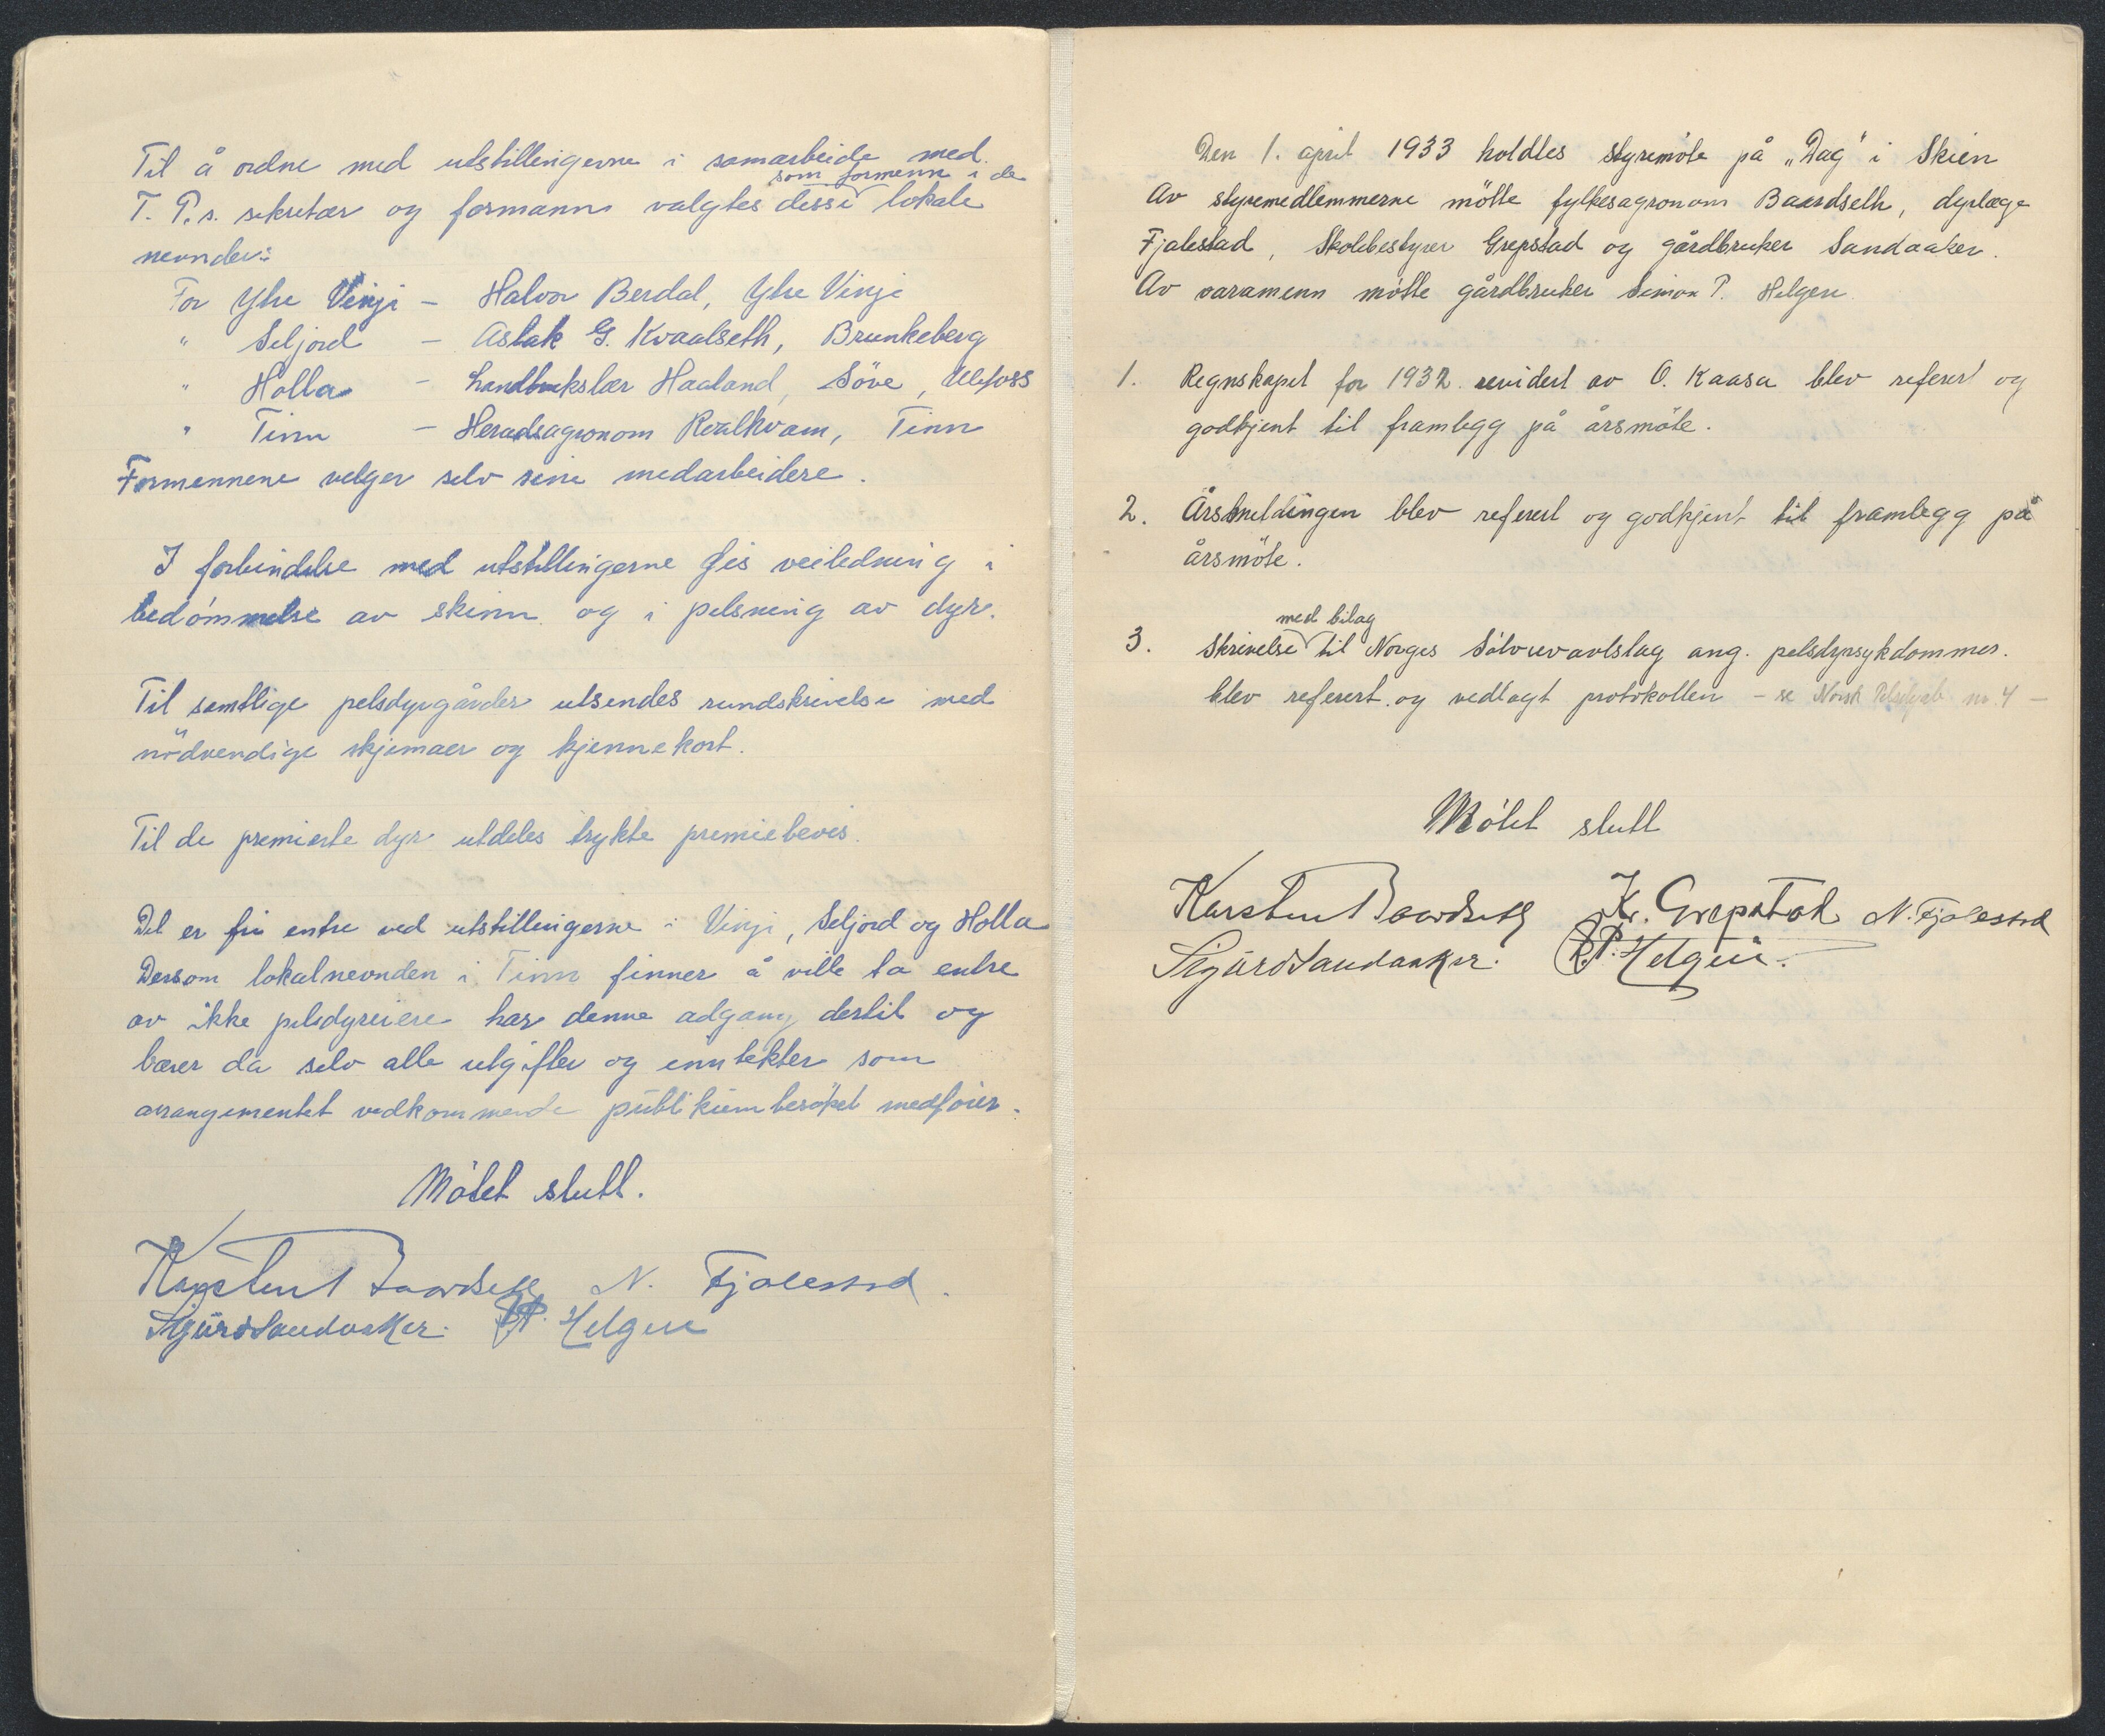 Til å ordne med utstillingerne i samarbeide med
som formenn i de
T. P.s. sekretær og formann valgtes disse lokale
nevnder:
For Ytre Vinje - Halvor Berdal, Ytre Vinje
" Seljord - Aslak G. Kvaalseth, Brunkeberg
" Holla - Landbrukslær Haaland, Söve, Ulefoss
" Tinn - Heradsagronom Kvalkvam, Tinn
Formennene velger selv sine medarbeidere.
I forbindelse med utstillingerne gis veiledning i
bedömmelse av skinn og i pelsning av dyr.
Til samtlige pelsdyrgårder utsendes rundskrivelse med
nödvendige skjemaer og kjennekort.
Til de premierte dyr utdeles trykte premiebevis.
Det er fri entre ved utstillingerne i Vinje, Seljord og Holla
Dersom lokalnevnden i Tinn finner å ville ta entre
av ikke pelsdyreiere har denne adgang dertil og
bærer da selv alle utgifter og inntekter som
arrangementet vedkommende publikumbesöket medförer.
Mötet slutt.
Karsten Baardseth N. Fjalestad.
Sigurd Sandaaker. S.P. Helgen
Den 1. april 1933 holdtes styremöte på „Dag" i Skien
Av styremedlemmerne mötte fylkesagronom Baardseth, dyrlæge
Fjalestad, Skolebestyrer Grepstad og gårdbruker Sandaaker.
Av varamenn mötte gårdbruker Simon P. Helgen
1. Regnskapet for 1932 revidert av O. Kaasa blev referert og
godkjent til framlegg på årsmöte.
2. Årsmeldingen blev referert og godkjent til framlegg på
årsmöte.
med bilag
3. Skrivelse til Norges Sölvrevavlslag ang. pelsdyrsykdommer.
blev referert og vedlagt protokollen - se Norsk Pelsdyrbl no. 4 -
Mötet slutt
Karsten Baardseth Kr. Grepstad N. Fjalestad
Sigurd Sandaaker. S.P. Helgen.